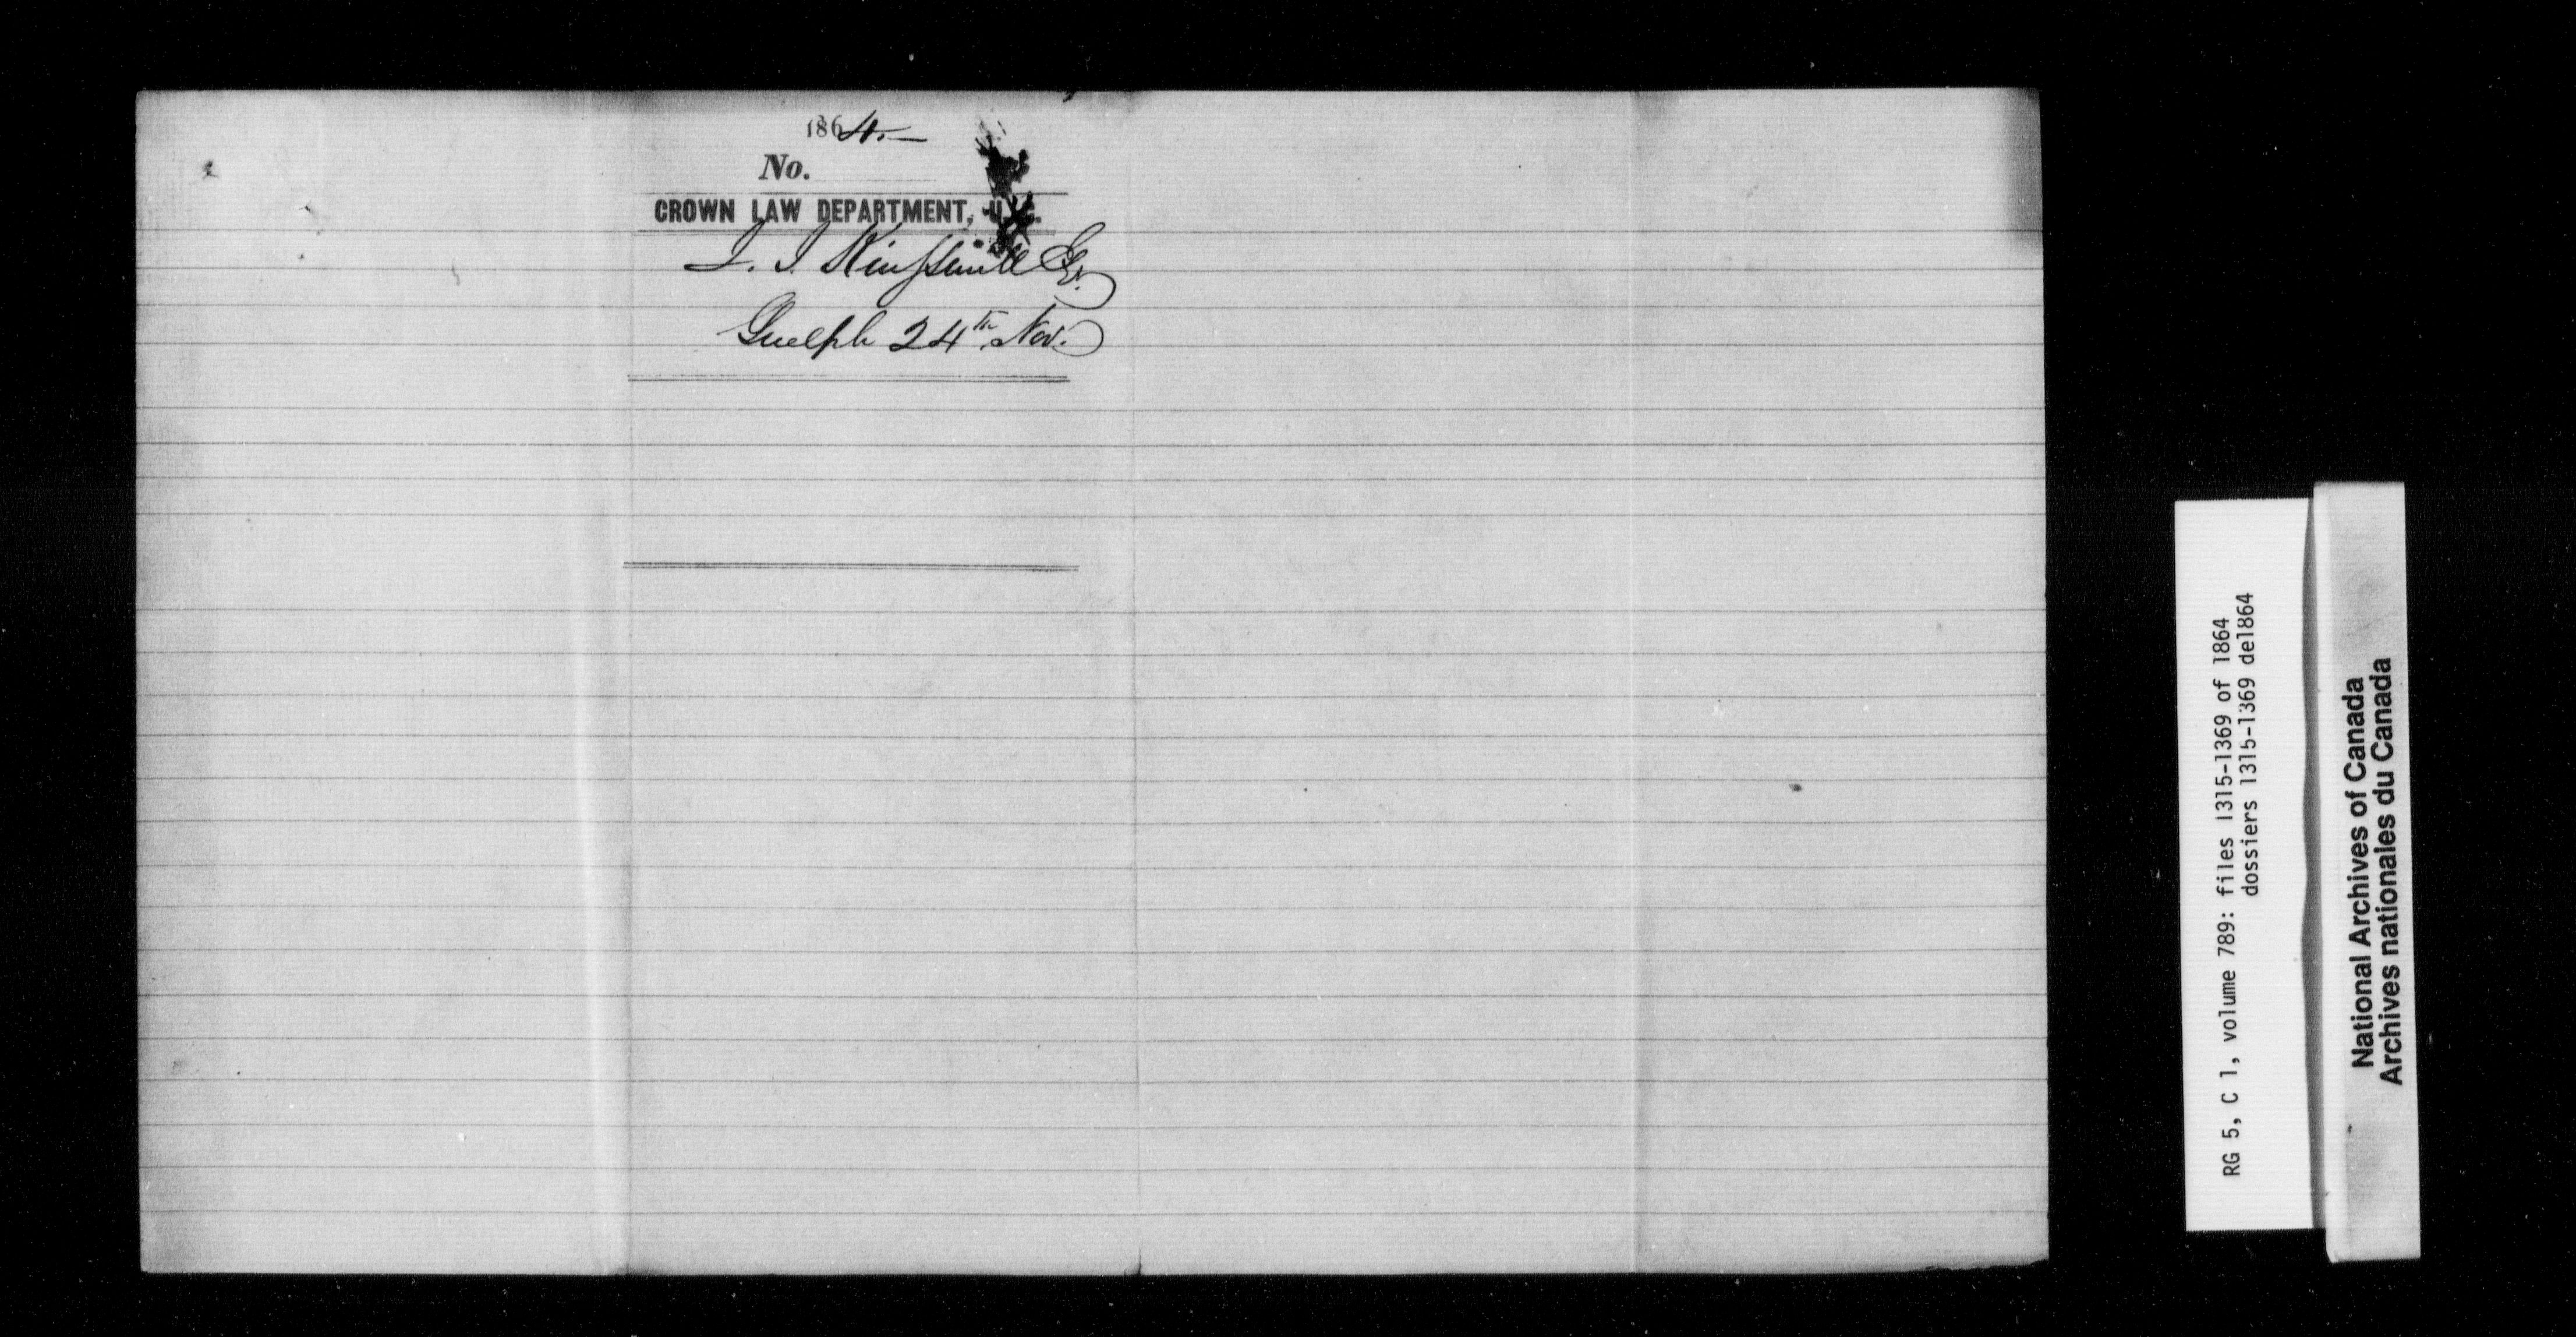 1864.—
No.
CROWN LAW DEPARTMENT, U.C.
Guelph 24th Nov.
RG 5, C 1, volume 789: files 1315-1369 of 1864
dossiers 1315-1369 de1864
National Archives of Canada
Archives nationales du Canada